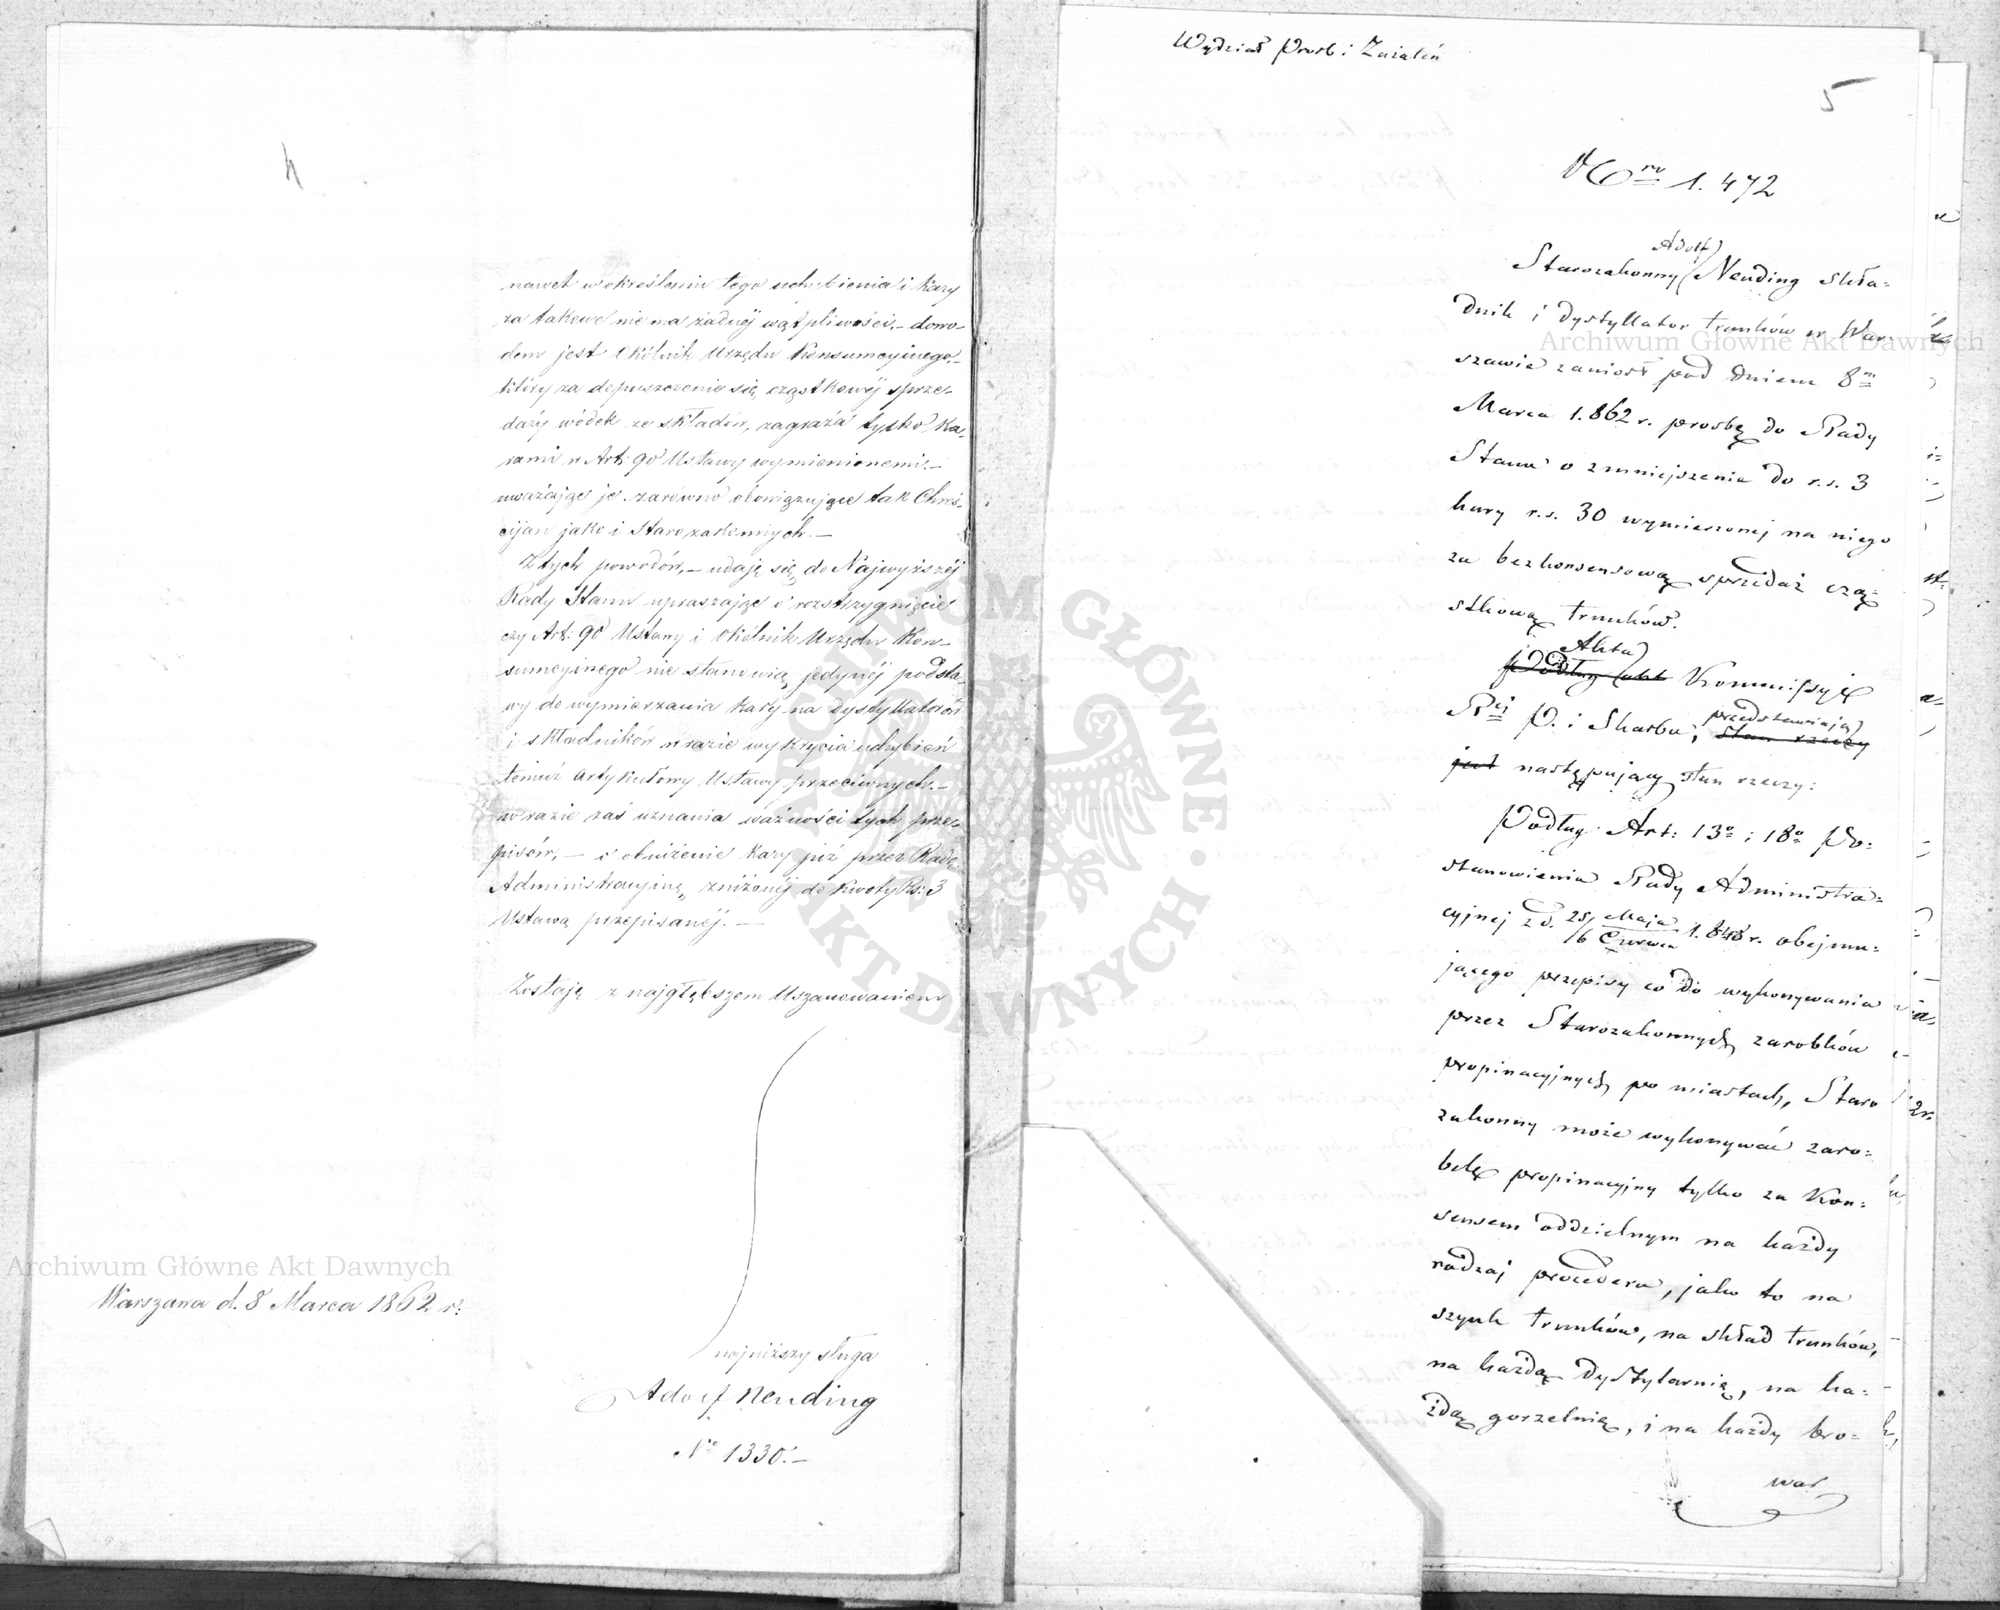 4
nawet w określeniu tego uchybienia i kary
za takowe nie ma żadnej wątpliwości, – dowo-
dem jest Okólnik Urzędu Konsumcyjnego,
który za dopuszczenie się cząstkowéj sprze-
daży wódek ze składów, zagraża tylko ka-
rami w Art: 90 Ustawy wymienionemi. –
uważając je zarówno obowiązujące tak Chrześ-
cijan jako i Starozakonnych. –
Z tych powodów, – udaję się do Najwyższéj
Rady Stanu upraszając o rozstrzygnięcie
czy Art: 90 Ustawy i Okólnik Urzędu Kon-
sumcyjnego nie stanowią jedynéj podsta-
wy do wymierzania kary na dystyllatorów
i składników w razie wykrycia uchybień
temuż Artykułowy Ustawy przeciwnych. –
w razie zaś uznania ważności tych prze-
pisów, – o obniżenie kary już przez Radę
Administracyjną zniżonéj do kwoty Rs: 3
Ustawą przepisanéj. –
Zostaję z najgłębszem Uszanowaniem
Warszawa d. 8 Marca 1862 r.
najniższy sługa
Adolf Neuding
No 1330. –
Wydział Prośb i Zażaleń
5
Nro 1.472
Adolf
Starozakonny Neuding skła=
dnik i dystyllator trunków w War=
szawie zaniosł pod dniem 8m
Marca 1.862 r. prosbę do Rady
Stanu o zmniejszenie do r.s. 3
kary r.s. 30 wymierzonej na niego
za bezkonsensową sprzedaż czą=
stkową trunków.
Akta
Podług akt Kommissyi
Rej P. i Skarbu, przedstawiają
stan rzeczy
jest następujący stan rzeczy:
Podług Art: 13o i 18o Po=
stanowienia Rady Administra=
cyjnej z d. 25/6 Maja/Czerwca 1.848 r. obejmu=
jącego przepisy co do wykonywania
przez Starozakonnych zarobków
propinacyjnych po miastach, Staro
zakonny może wykonywać zaro=
bek propinacyjny tylko za Kon=
sensem oddzielnym na każdy
rodzaj procederu, jako to na
szynk trunków, na skład trunków,
na każdą dystylarnię, na ka=
żdą gorzelnię, i na każdy bro=
war
Archiwum Główne Akt Dawnych
Archiwum Główne Akt Dawnych
ARCHIWUM GŁÓWNE AKT DAWNYCH